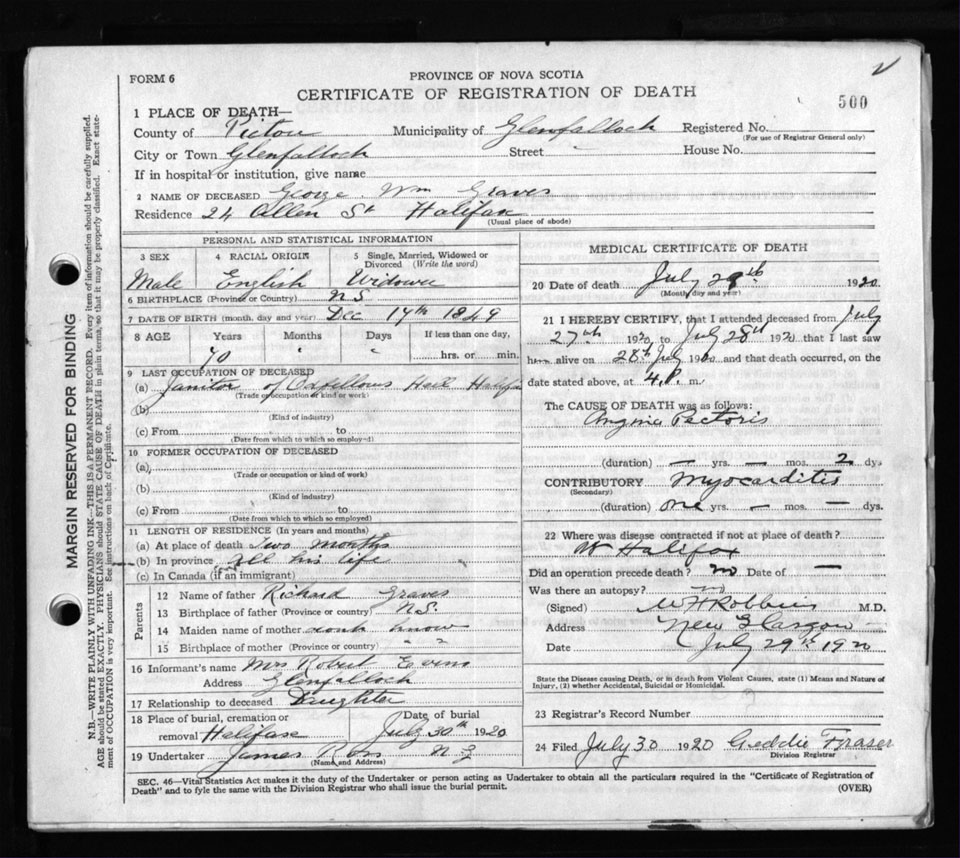 FORM 6
PROVINCE OF NOVA SCOTIA
CERTIFICATE OF REGISTRATION OF DEATH
500
1 PLACE OF DEATH—
County of Pictou Municipality of Glenfalloch Registered No.
(For use of Registrar General only)
City or Town Glenfalloch Street " House No.
If in hospital or institution, give name
2 NAME OF DECEASED George Wm Graves
Residence 24 Allen St Halifax
(Usual place of abode)
PERSONAL AND STATISTICAL INFORMATION
3 SEX 4 RACIAL ORIGIN 5 Single, Married, Widowed or Divorced (Write the word)
Male English Widower
6 BIRTHPLACE (Province or Country) N.S.
7 DATE OF BIRTH (month, day and year) Dec 17th 1849
8 AGE Years Months Days If less than one day,
70 " " hrs. or min.
9 LAST OCCUPATION OF DECEASED
(a) Janitor of Odfellows Hall Halifax
(Trade or occupation or kind or work)
(b)
(Kind of industry)
(c) From to
(Date from which to which so employed)
10 FORMER OCCUPATION OF DECEASED
(a)
(Trade or occupation or kind of work)
(b)
(Kind of industry)
(c) From to
(Date from which to which so employed)
11 LENGTH OF RESIDENCE (In years and months)
(a) At place of death Two months
(b) In province all his life
(c) In Canada (if an immigrant)
Parents
12 Name of father Richard Graves
13 Birthplace of father (Province or country) N.S.
14 Maiden name of mother dont know
15 Birthplace of mother (Province or country) " "
16 Informant's name Mrs Robert Evans
Address Glenfalloch
17 Relationship to deceased Daughter
18 Place of burial, cremation or removal Halifax Date of burial July 30th 1920
19 Undertaker James Ross N G
(Name and Address)
MEDICAL CERTIFICATE OF DEATH
20 Date of death July 29th 1920
(Month day and year)
21 I HEREBY CERTIFY, that I attended deceased from July
27th 1920 to July 28th 1920 that I last saw
h alive on 28th July 1920 and that death occurred, on the
date stated above, at 4 P. m.
The CAUSE OF DEATH was as follows:
Angina Pectoris
(duration) — yrs. — mos. 2 dys
CONTRIBUTORY Myocarditis
(Secondary)
(duration) one yrs. — mos. — dys.
22 Where was disease contracted if not at place of death?
At Halifax
Did an operation precede death? no Date of —
Was there an autopsy? no
(Signed) W H Robbins M.D.
Address New Glasgow
Date July 29th 1920
State the Disease causing Death, or in death from Violent Causes, state (1) Means and Nature of
Injury, (2) whether Accidental, Suicidal or Homicidal.
23 Registrar's Record Number
24 Filed July 30 1920 Geddie Fraser
Division Registrar
SEC. 46—Vital Statistics Act makes it the duty of the Undertaker or person acting as Undertaker to obtain all the particulars required in the "Certificate of Registration of
Death" and to fyle the same with the Division Registrar who shall issue the burial permit. (OVER)
MARGIN RESERVED FOR BINDING
N.B.—WRITE PLAINLY WITH UNFADING INK—THIS IS A PERMANENT RECORD. Every item of information should be carefully supplied.
AGE should be stated EXACTLY. PHYSICIANS should STATE CAUSE OF DEATH in plain terms, so that it may be properly classified. Exact state-
ment of OCCUPATION is very important. See instructions on back of Certificate.